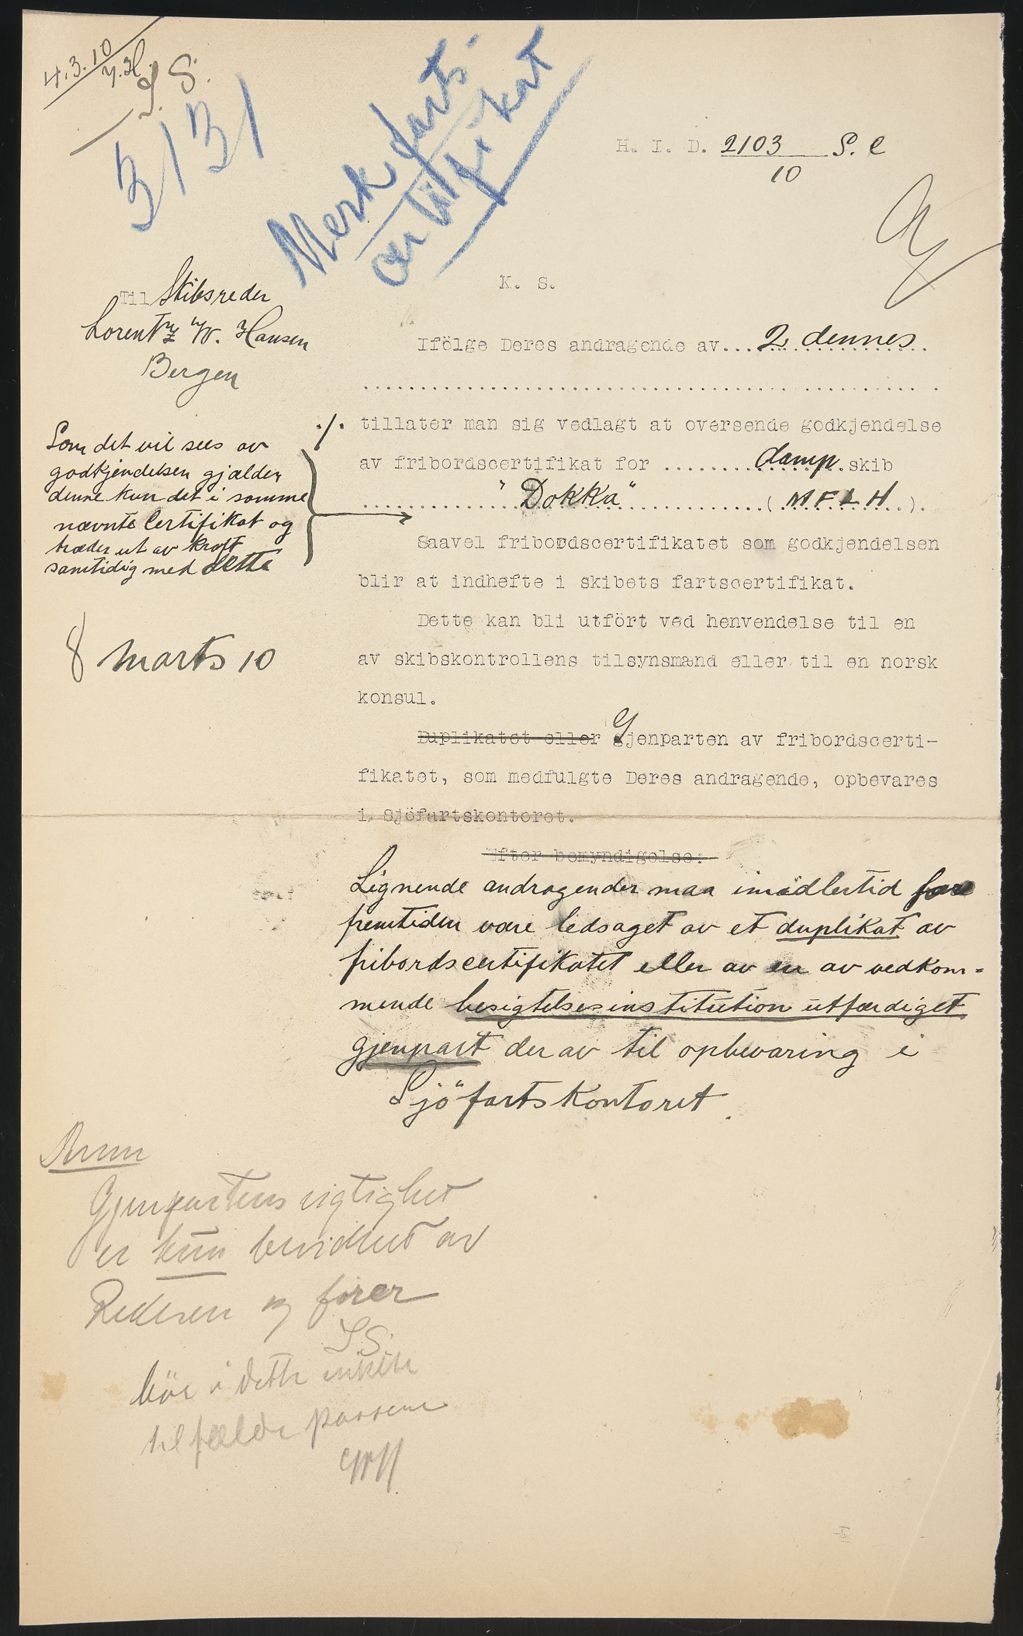 4.3.10
J. S.
3131
Merk farts-
certifikat
H. I. D. 2103 S. C
10
K. S.
Til Skibsreder
Lorentz W. Hansen
Bergen
Ifölge Deres andragende av... 2 dennes
./. tillater man sig vedlagt at oversende godkjendelse
av fribordscertifikat for ........ damp.skib
"Dokka" (MFLH).
Som det vil sees av
godkjendelsen gjælder
denne kun det i samme
nævnte Certifikat og
træder ut av kraft
samtidig med dette
Saavel fribordscertifikatet som godkjendelsen
blir at indhefte i skibets fartscertifikat.
Dette kan bli utfört ved henvendelse til en
av skibskontrollens tilsynsmænd eller til en norsk
konsul.
8 Marts 10
Duplikatet eller Gjenparten av fribordscerti-
fikatet, som medfulgte Deres andragende, opbevares
i Sjöfartskontoret.
Efter bemyndigelse:
Lignende andragender maa imidlertid for
fremtiden være ledsaget av et duplikat av
fribordscertifikatet eller av en av vedkom-
mende besigtelsesinstitution utfærdiget
gjenpart derav til opbevaring i
Sjöfartskontoret.
Anm
Gjenpartens rigtighet
er kun bevidnet av
Rederen og fører
S.S.
bör i dette enkelte
tilfælde passere